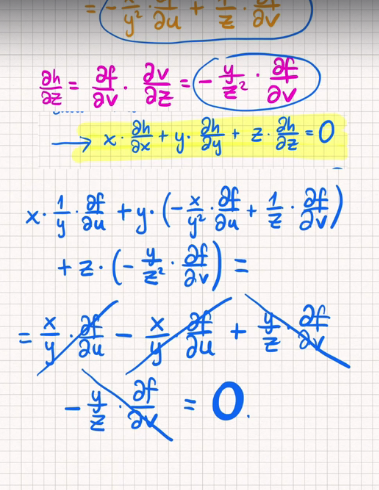 = -x/y² · ∂f/∂u + 1/z · ∂f/∂v
∂h/∂z = ∂f/∂v · ∂v/∂z = -y/z² · ∂f/∂v
→ x · ∂h/∂x + y · ∂h/∂y + z · ∂h/∂z = 0
x · 1/y · ∂f/∂u + y · (-x/y² · ∂f/∂u + 1/z · ∂f/∂v)
+ z · (-y/z² · ∂f/∂v) =
= x/y · ∂f/∂u - x/y · ∂f/∂u + y/z · ∂f/∂v
- y/z · ∂f/∂v = 0.